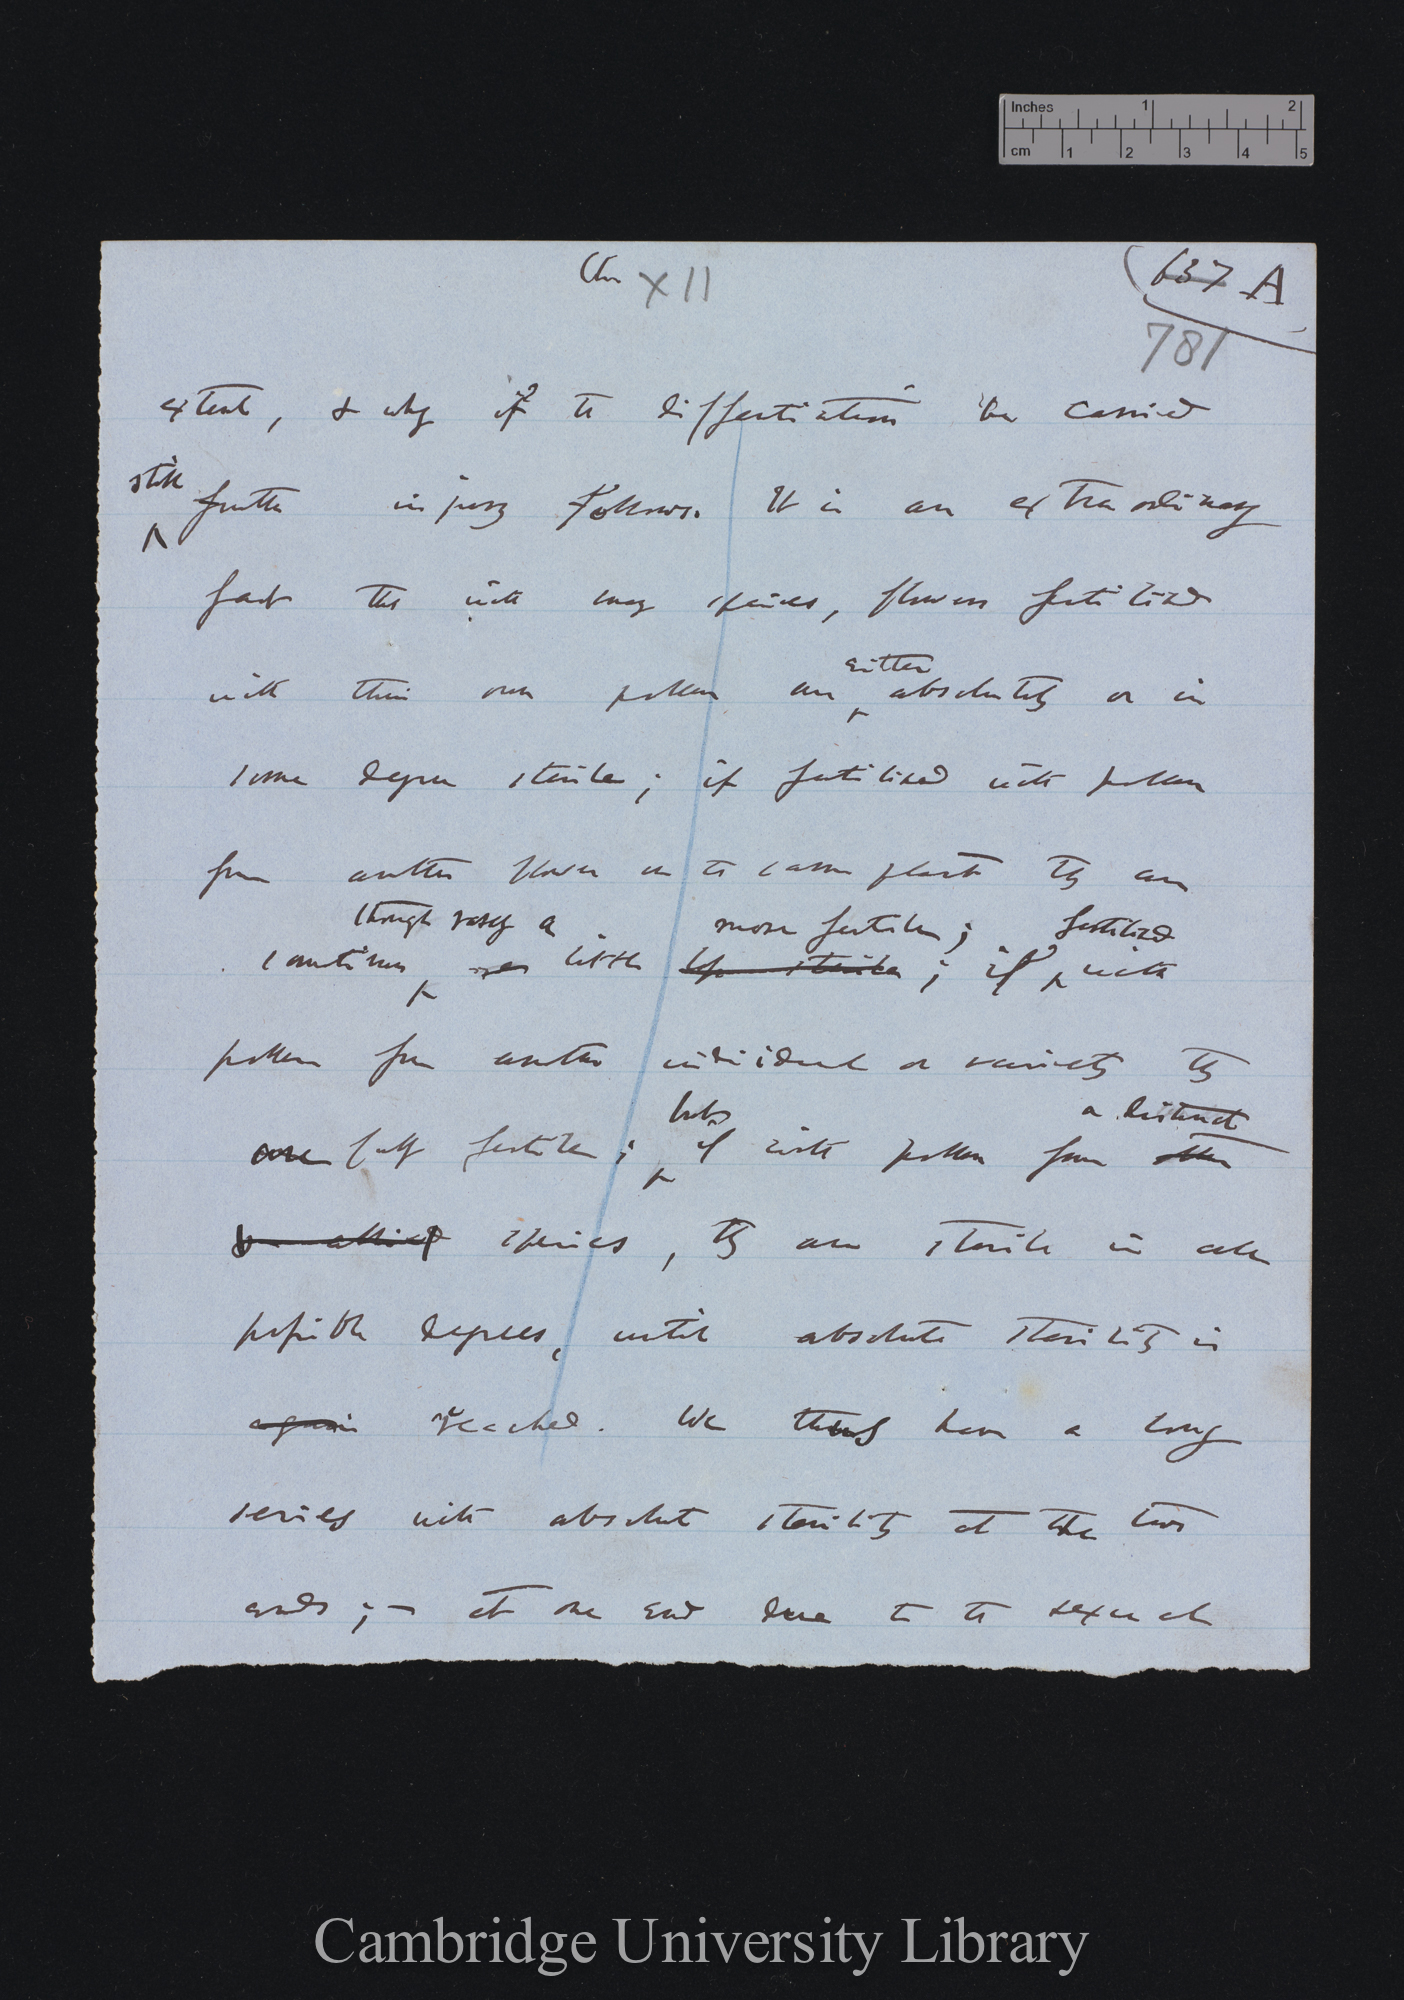 Inches 1 2
cm 1 2 3 4 5
Ch XII
637 A
781
extent, & why if the differtiation be carried
still
further injury follows. It is an extraordinary
fact that with many species, flowers fertilised
either
with their own pollen are absolutely or in
some degree sterile; if fertilised with pollen
from another flower on the same plant they are
though rarely a more fertile; fertilised
sometimes little less sterile; if with
pollen from another individual or variety they
but a distinct
are fully fertile; if with pollen from other
allied species, they are sterile in all
possible degrees, until absolute sterility is
again reached. We thus have a long
series with absolute sterility at the two
ends; – at one end due to the sexual
Cambridge University Library